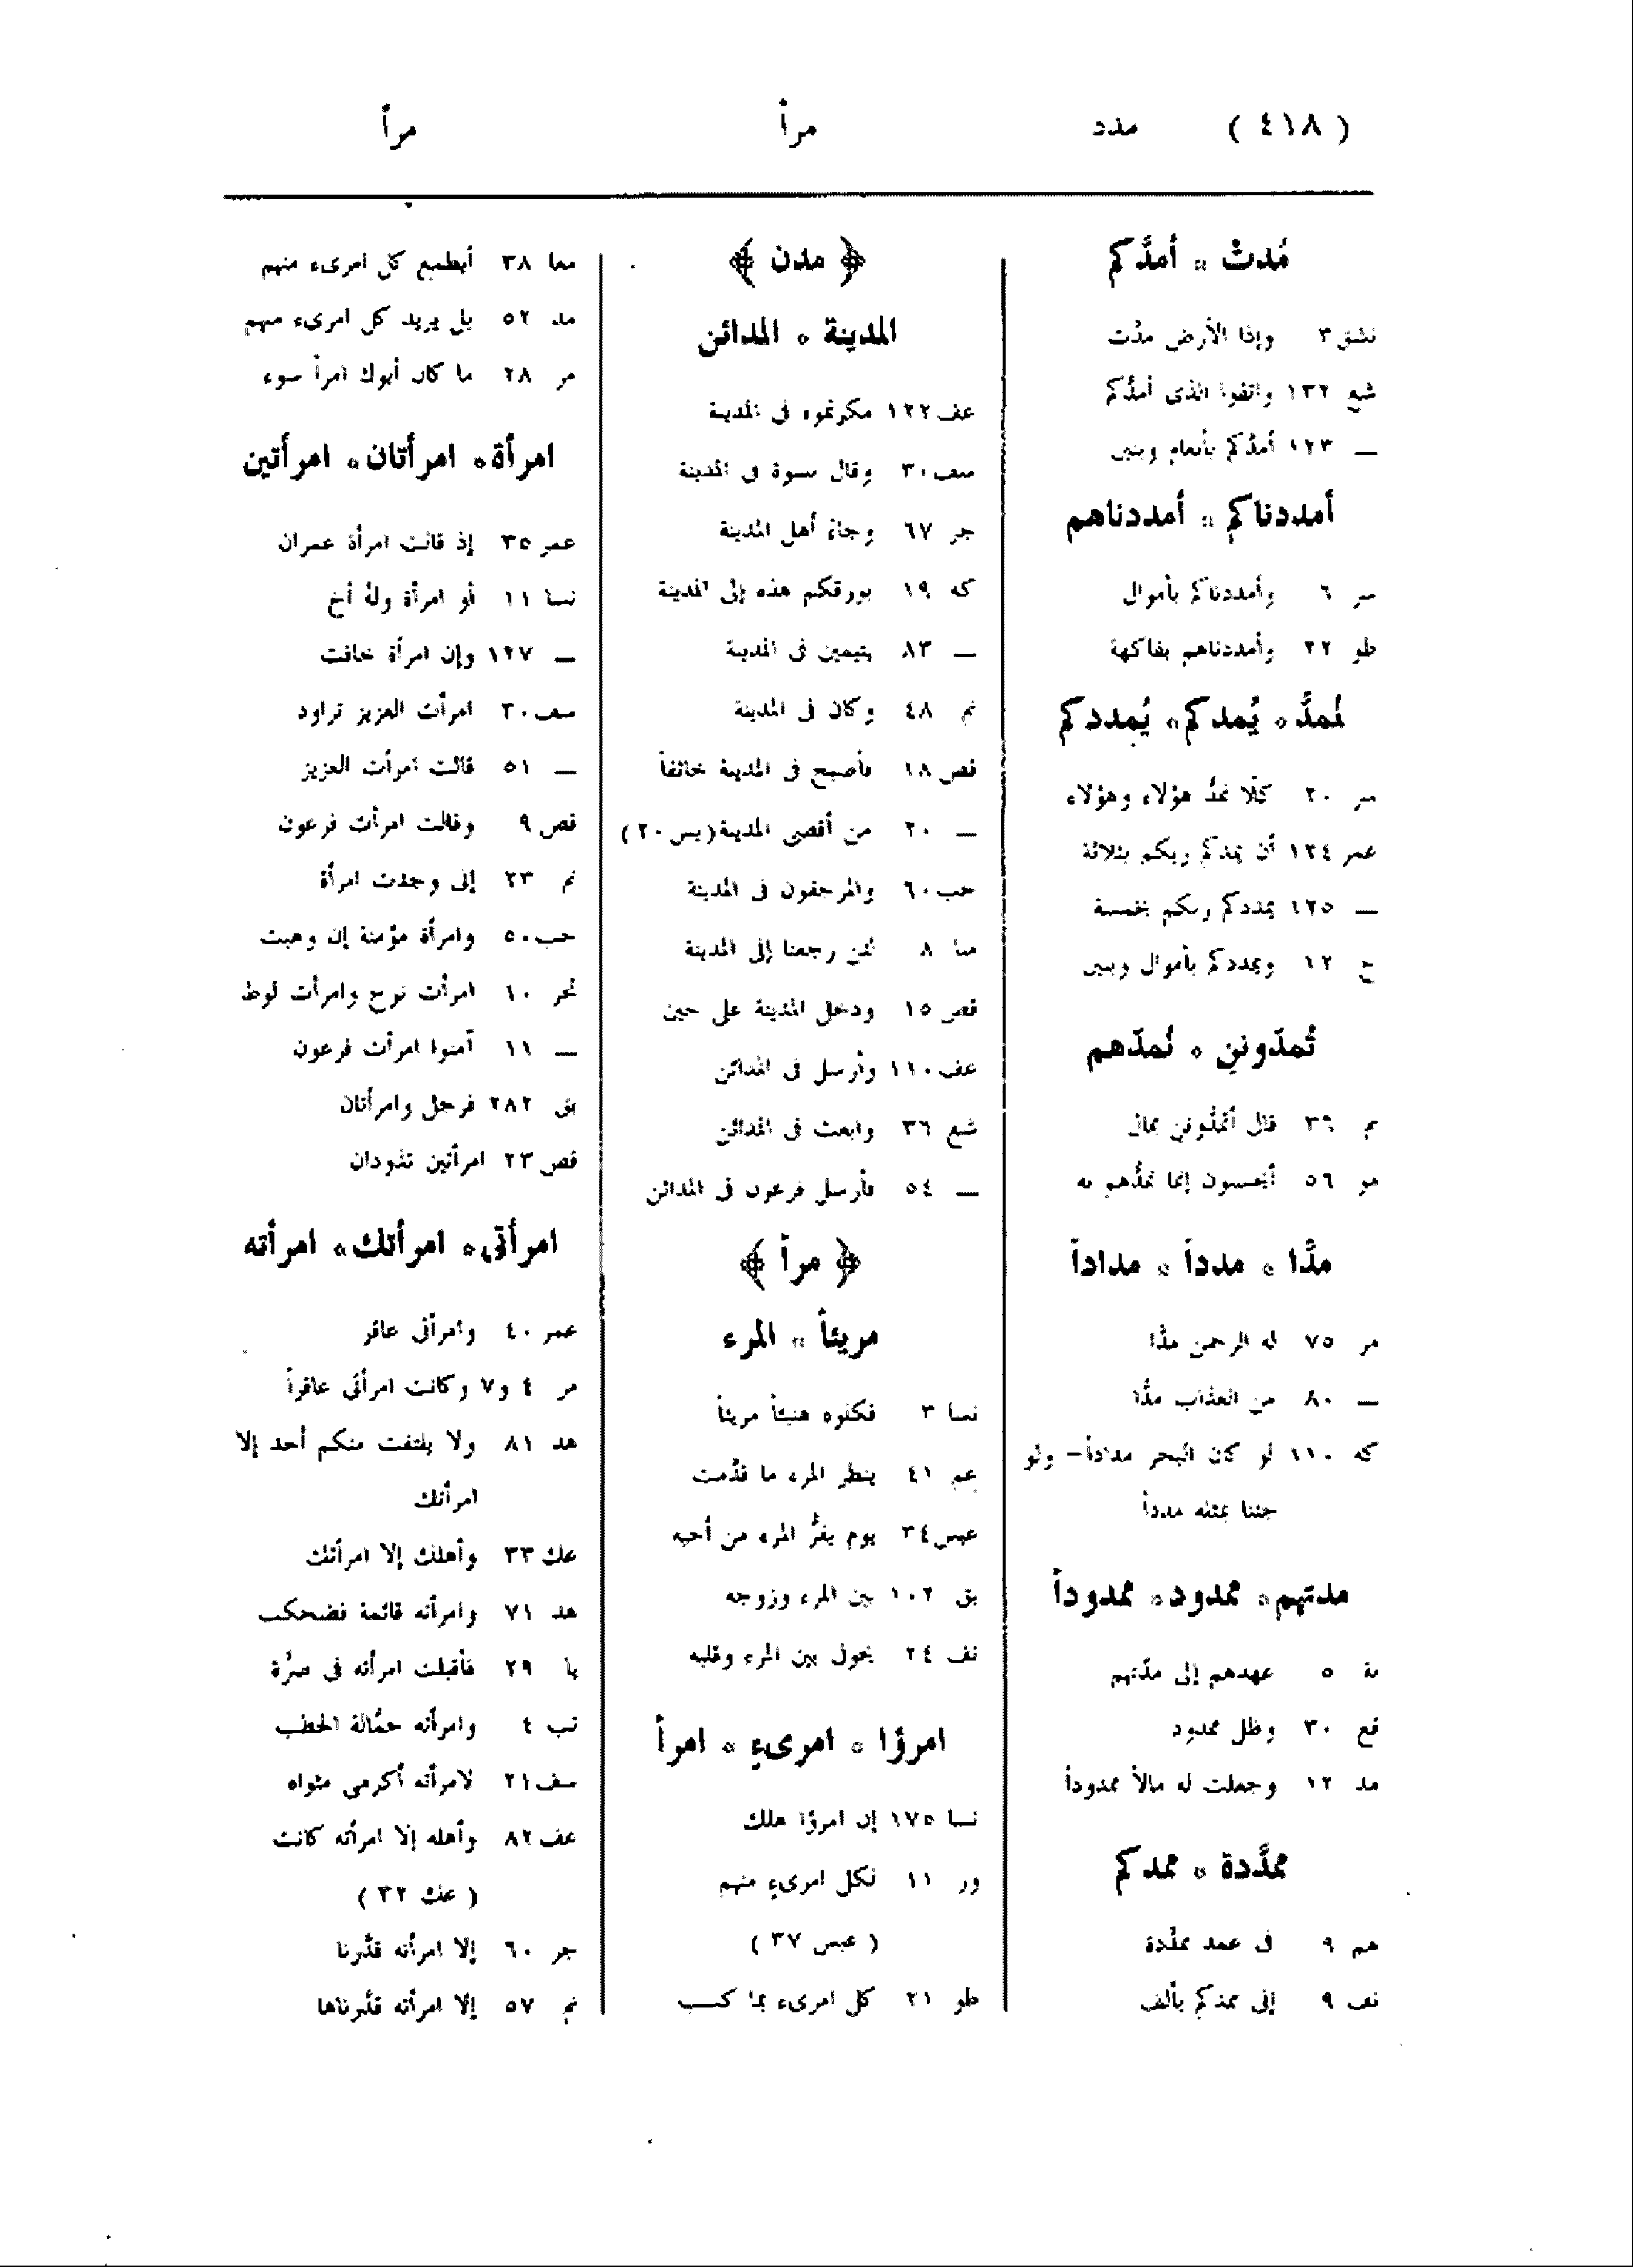 ( ٤١٨ ) مدد مرأ مرأ
مُدتْ * أمدَّكم
نشق ٣ وإذا الأرض مدّت
شع ١٣٢ واتقوا الذى أمدَّكم
— ١٢٣ أمدَّكم بأنعام وبنين
أمددناكم * أمددناهم
سر ٦ وأمددناكم بأموال
طو ٢٢ وأمددناهم بفاكهة
نُمدَّ * يُمدكم * يُمددكم
سر ٢٠ كلّا نمدُّ هؤلاء وهؤلاء
عمر ١٢٤ أن يمدكم ربكم بثلاثة
— ١٢٥ يمددكم ربكم بخمسة
ح ١٢ ويمددكم بأموال وبنين
تُمدّوننِ * نُمدّهم
نم ٣٦ قال أتمدّونن بمال
مو ٥٦ أيحسبون إنما نمدُّهم به
مدًّا * مدداً * مداداً
مر ٧٥ له الرحمن مدًّا
— ٨٠ من العذاب مدًّا
كه ١١٠ لو كان البحر مداداً – ولو
جئنا بمثله مدداً
مدتهم * ممدود * ممدوداً
بة ٥ عهدهم إلى مدّتهم
قع ٣٠ وظل ممدود
مد ١٢ وجعلت له مالاً ممدوداً
ممدَّدة * ممدكم
هم ٩ فى عمد ممدّدة
نف ٩ إنى ممدكم بألف
﴿ مدن ﴾
المدينة * المدائن
عف ١٢٢ مكرتموه فى المدينة
سف ٣٠ وقال نسوة فى المدينة
جر ٦٧ وجاء أهل المدينة
كه ١٩ بورقكم هذه إلى المدينة
— ٨٣ يتيمين فى المدينة
نم ٤٨ وكان فى المدينة
قص ١٨ فأصبح فى المدينة خائفاً
— ٢٠ من أقصى المدينة (يس ٢٠)
حب ٦٠ والمرجفون فى المدينة
منا ٨ لئن رجعنا إلى المدينة
قص ١٥ ودخل المدينة على حين
عف ١١٠ وأرسل فى المدائن
شع ٣٦ وابعث فى المدائن
— ٥٤ فأرسل فرعون فى المدائن
﴿ مرأ ﴾
مريئاً * المرء
نسا ٣ فكلوه هنيئاً مريئاً
عم ٤١ ينظر المرء ما قدَّمت
عبس ٣٤ يوم يفرُّ المرء من أخيه
بق ١٠٢ بين المرء وزوجه
نف ٢٤ يحول بين المرء وقلبه
امرؤا * امرىءٍ * امرأ
نسا ١٧٥ إن امرؤا هلك
ور ١١ لكل امرىءٍ منهم
( عبس ٣٧ )
طو ٢١ كل امرىء بما كسب
معا ٣٨ أيطمع كل امرىء منهم
مد ٥٢ بل يريد كل امرىء منهم
مر ٢٨ ما كان أبوك امرأ سوء
امرأة * امرأتان * امرأتين
عمر ٣٥ إذ قالت امرأة عمران
نسا ١١ أو امرأة وله أخ
— ١٢٧ وإن امرأة خافت
سف ٣٠ امرأت العزيز تراود
— ٥١ قالت امرأت العزيز
قص ٩ وقالت امرأت فرعون
نم ٢٣ إنى وجدت امرأة
حب ٥٠ وامرأة مؤمنة إن وهبت
تحر ١٠ امرأت نوح وامرأت لوط
— ١١ آمنوا امرأت فرعون
بق ٢٨٢ فرجل وامرأتان
قص ٢٣ امرأتين تذودان
امرأتى * امرأتك * امرأته
عمر ٤٠ وامرأتى عاقر
مر ٤ و٧ وكانت امرأتى عاقراً
هد ٨١ ولا يلتفت منكم أحد إلا
امرأتك
عك ٣٣ وأهلك إلا امرأتك
هد ٧١ وامرأته قائمة فضحكت
يا ٢٩ فأقبلت امرأته فى صرَّة
تب ٤ وامرأته حمّالة الحطب
سف ٢١ لامرأته أكرمى مثواه
عف ٨٢ وأهله إلا امرأته كانت
( عنك ٣٢ )
جر ٦٠ إلا امرأته قدَّرنا
نم ٥٧ إلا امرأته قدَّرناها